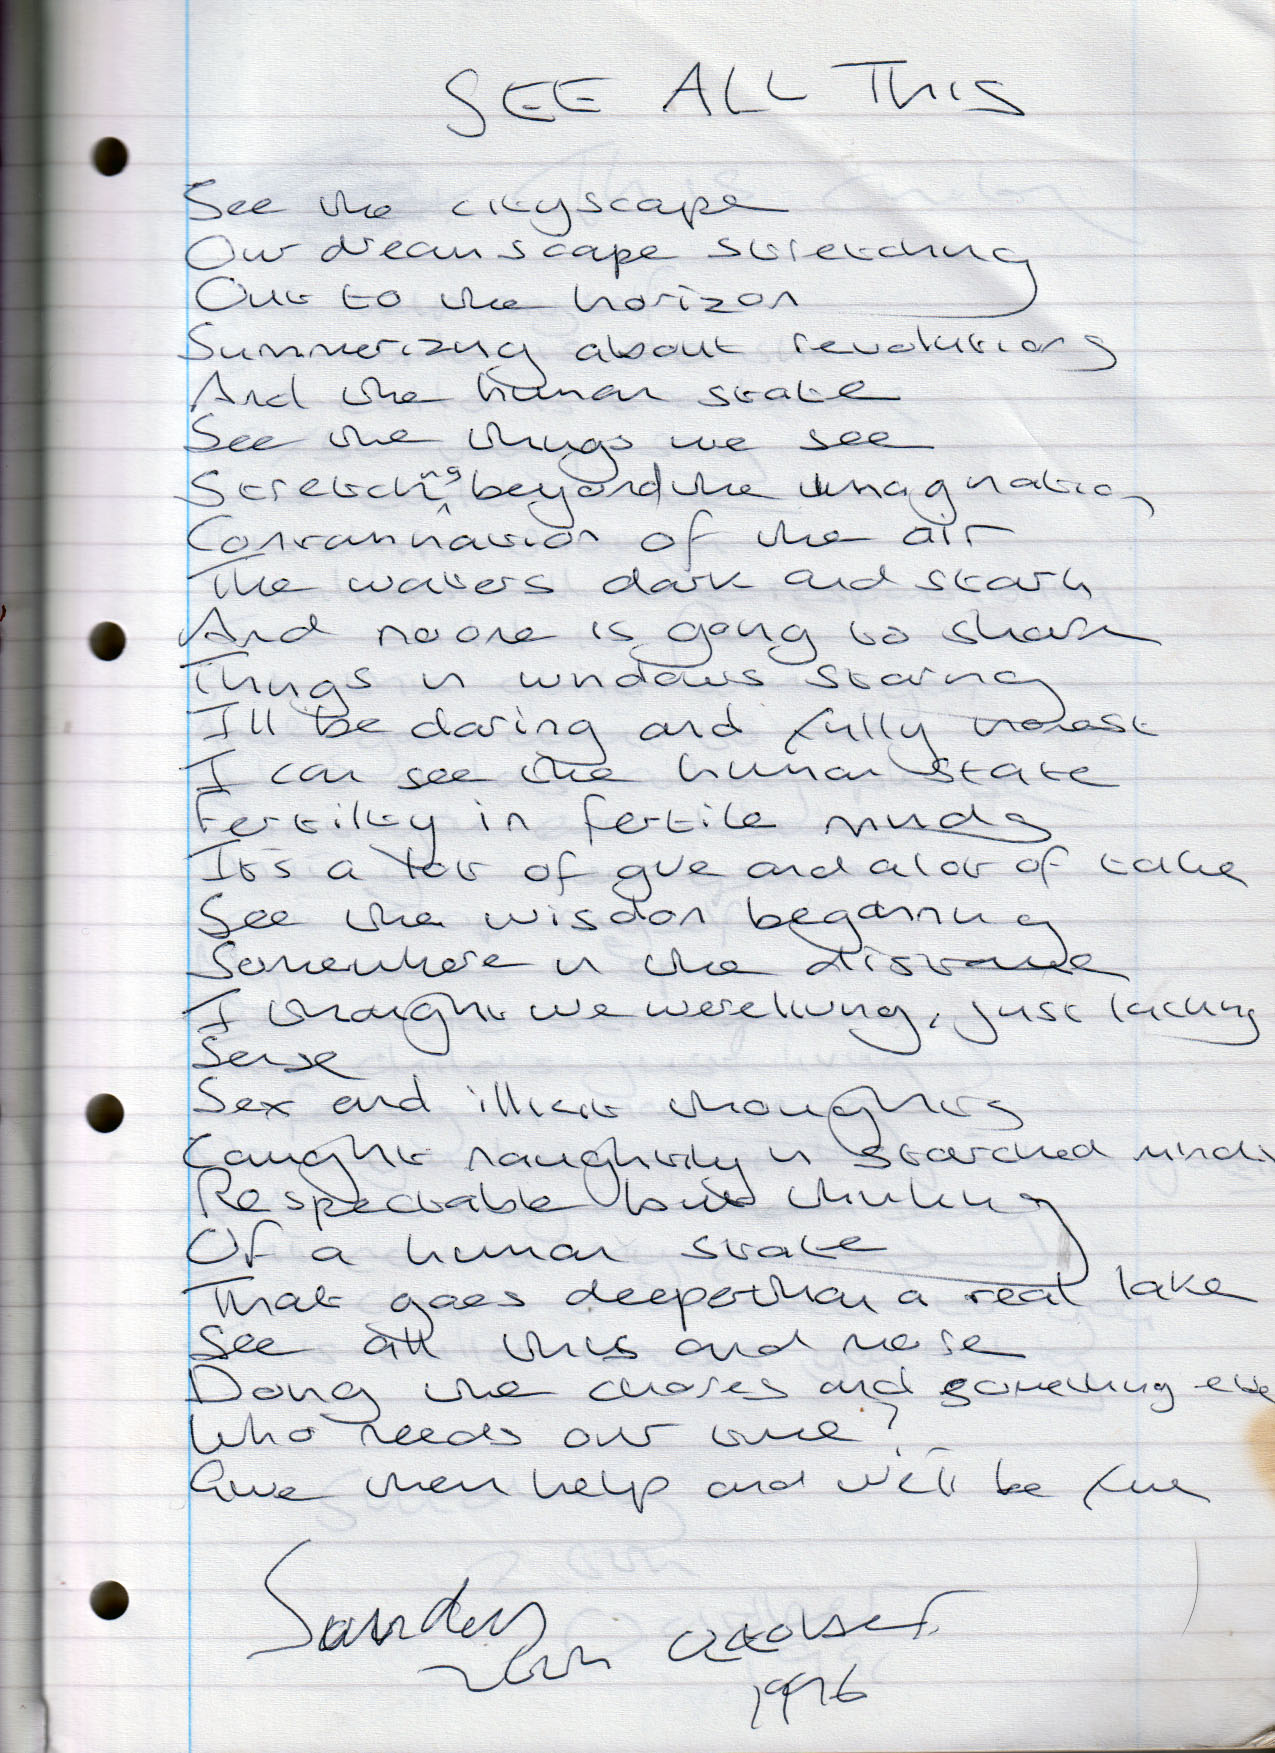 SEE ALL THIS
See the cityscape
Our dreamscape stretching
Out to the horizon
Summerizing about revolutions
And the human state
See the things we see
Stretching beyond the imagination
Contamination of the air
The waters dark and stark
And no one is going to share
Things in windows staring
I'll be daring and fully honest
I can see the human state
Fertility in fertile minds
It's a lot of give and a lot of take
See the wisdom beginning
Somewhere in the distance
I thought we were living, just lacking
Sense
Sex and illicit thoughts
Caught naughtily in starched minds
Respectable but thinking
Of a human state
That goes deeper than a real lake
See all this and more
Doing the chores and something else
Who needs our time?
Give them help and we'll be fine
October
1996